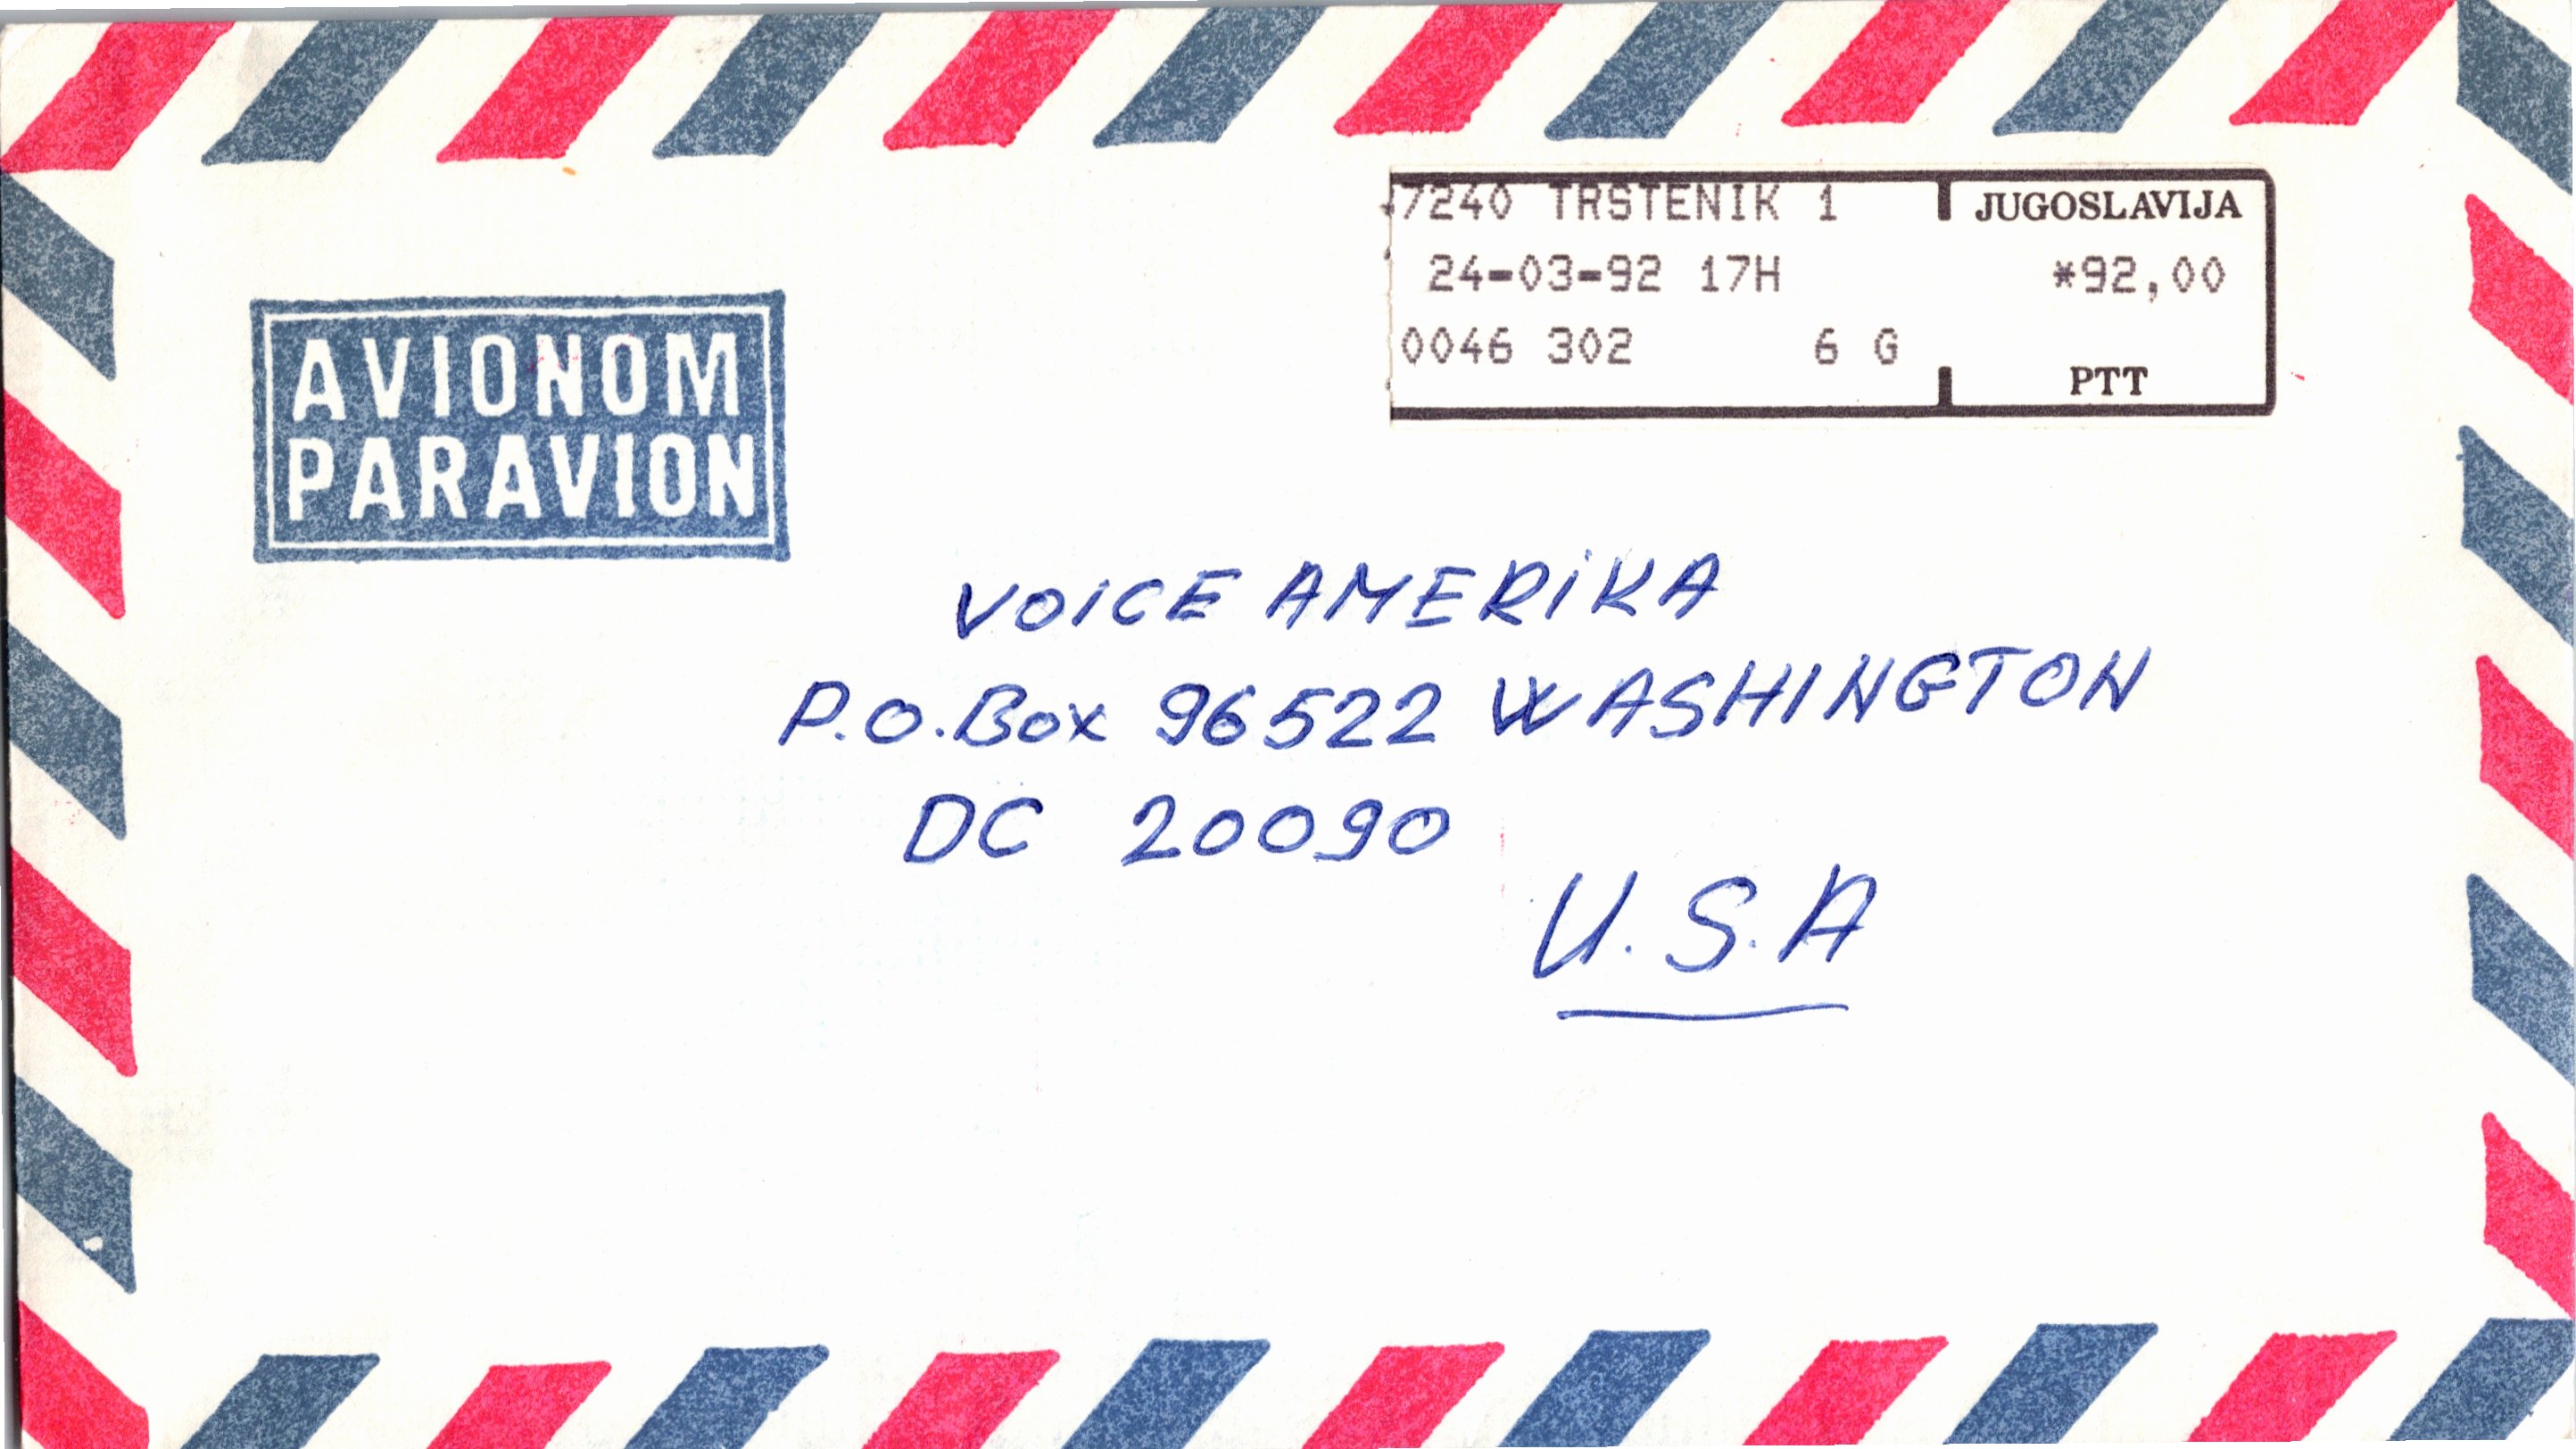 7240 TRSTENIK 1
JUGOSLAVIJA
24-03-92 17H
*92,00
0046 302 6 G
PTT
AVIONOM
PARAVION
VOICE AMERIKA
P.O.Box 96522 WASHINGTON
DC 20090
U.S.A